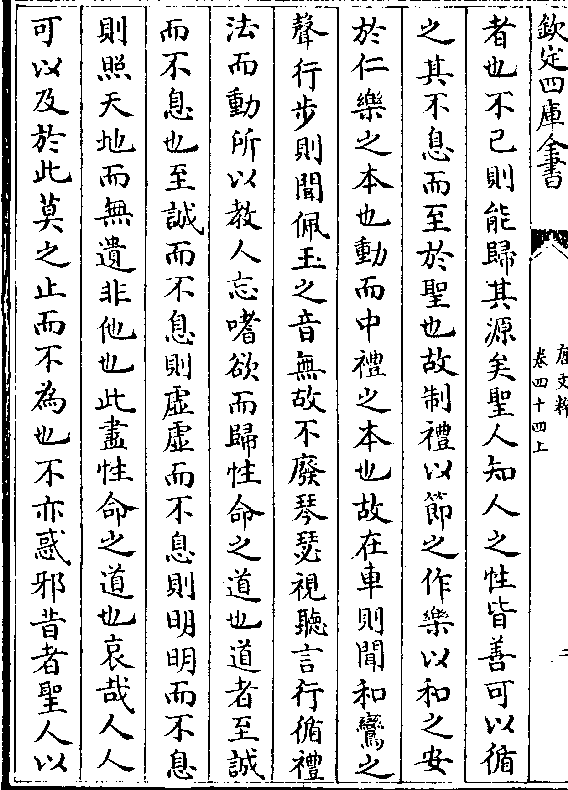 欽定四庫全書
唐文粹
卷四十四上
二
者也不已則能歸其源矣聖人知人之性皆善可以循
之其不息而至於聖也故制禮以節之作樂以和之安
於仁樂之本也動而中禮之本也故在車則聞和鸞之
聲行步則聞佩玉之音無故不廢琴瑟視聽言行循禮
法而動所以教人忘嗜欲而歸性命之道也道者至誠
而不息也至誠而不息則虛虛而不息則明明而不息
則照天地而無遺非他也此盡性命之道也哀哉人人
可以及於此莫之止而不為也不亦惑邪昔者聖人以